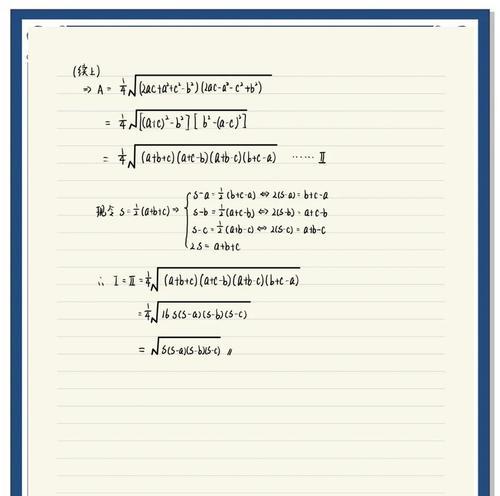 (续上)
⇒ A = 1/4√(2ac+a²+c²-b²)(2ac-a²-c²+b²)
= 1/4√[(a+c)²-b²][b²-(a-c)²]
= 1/4√(a+b+c)(a+c-b)(a+b-c)(b+c-a) ⋯⋯ Ⅱ
s-a = 1/2(b+c-a) ⇔ 2(s-a) = b+c-a
现令 s = 1/2(a+b+c) ⇒ { s-b = 1/2(a+c-b) ⇔ 2(s-b) = a+c-b
s-c = 1/2(a+b-c) ⇔ 2(s-c) = a+b-c
2s = a+b+c
∴ Ⅰ = Ⅱ = 1/4√(a+b+c)(a+c-b)(a+b-c)(b+c-a)
= 1/4√16s(s-a)(s-b)(s-c)
= √s(s-a)(s-b)(s-c) //